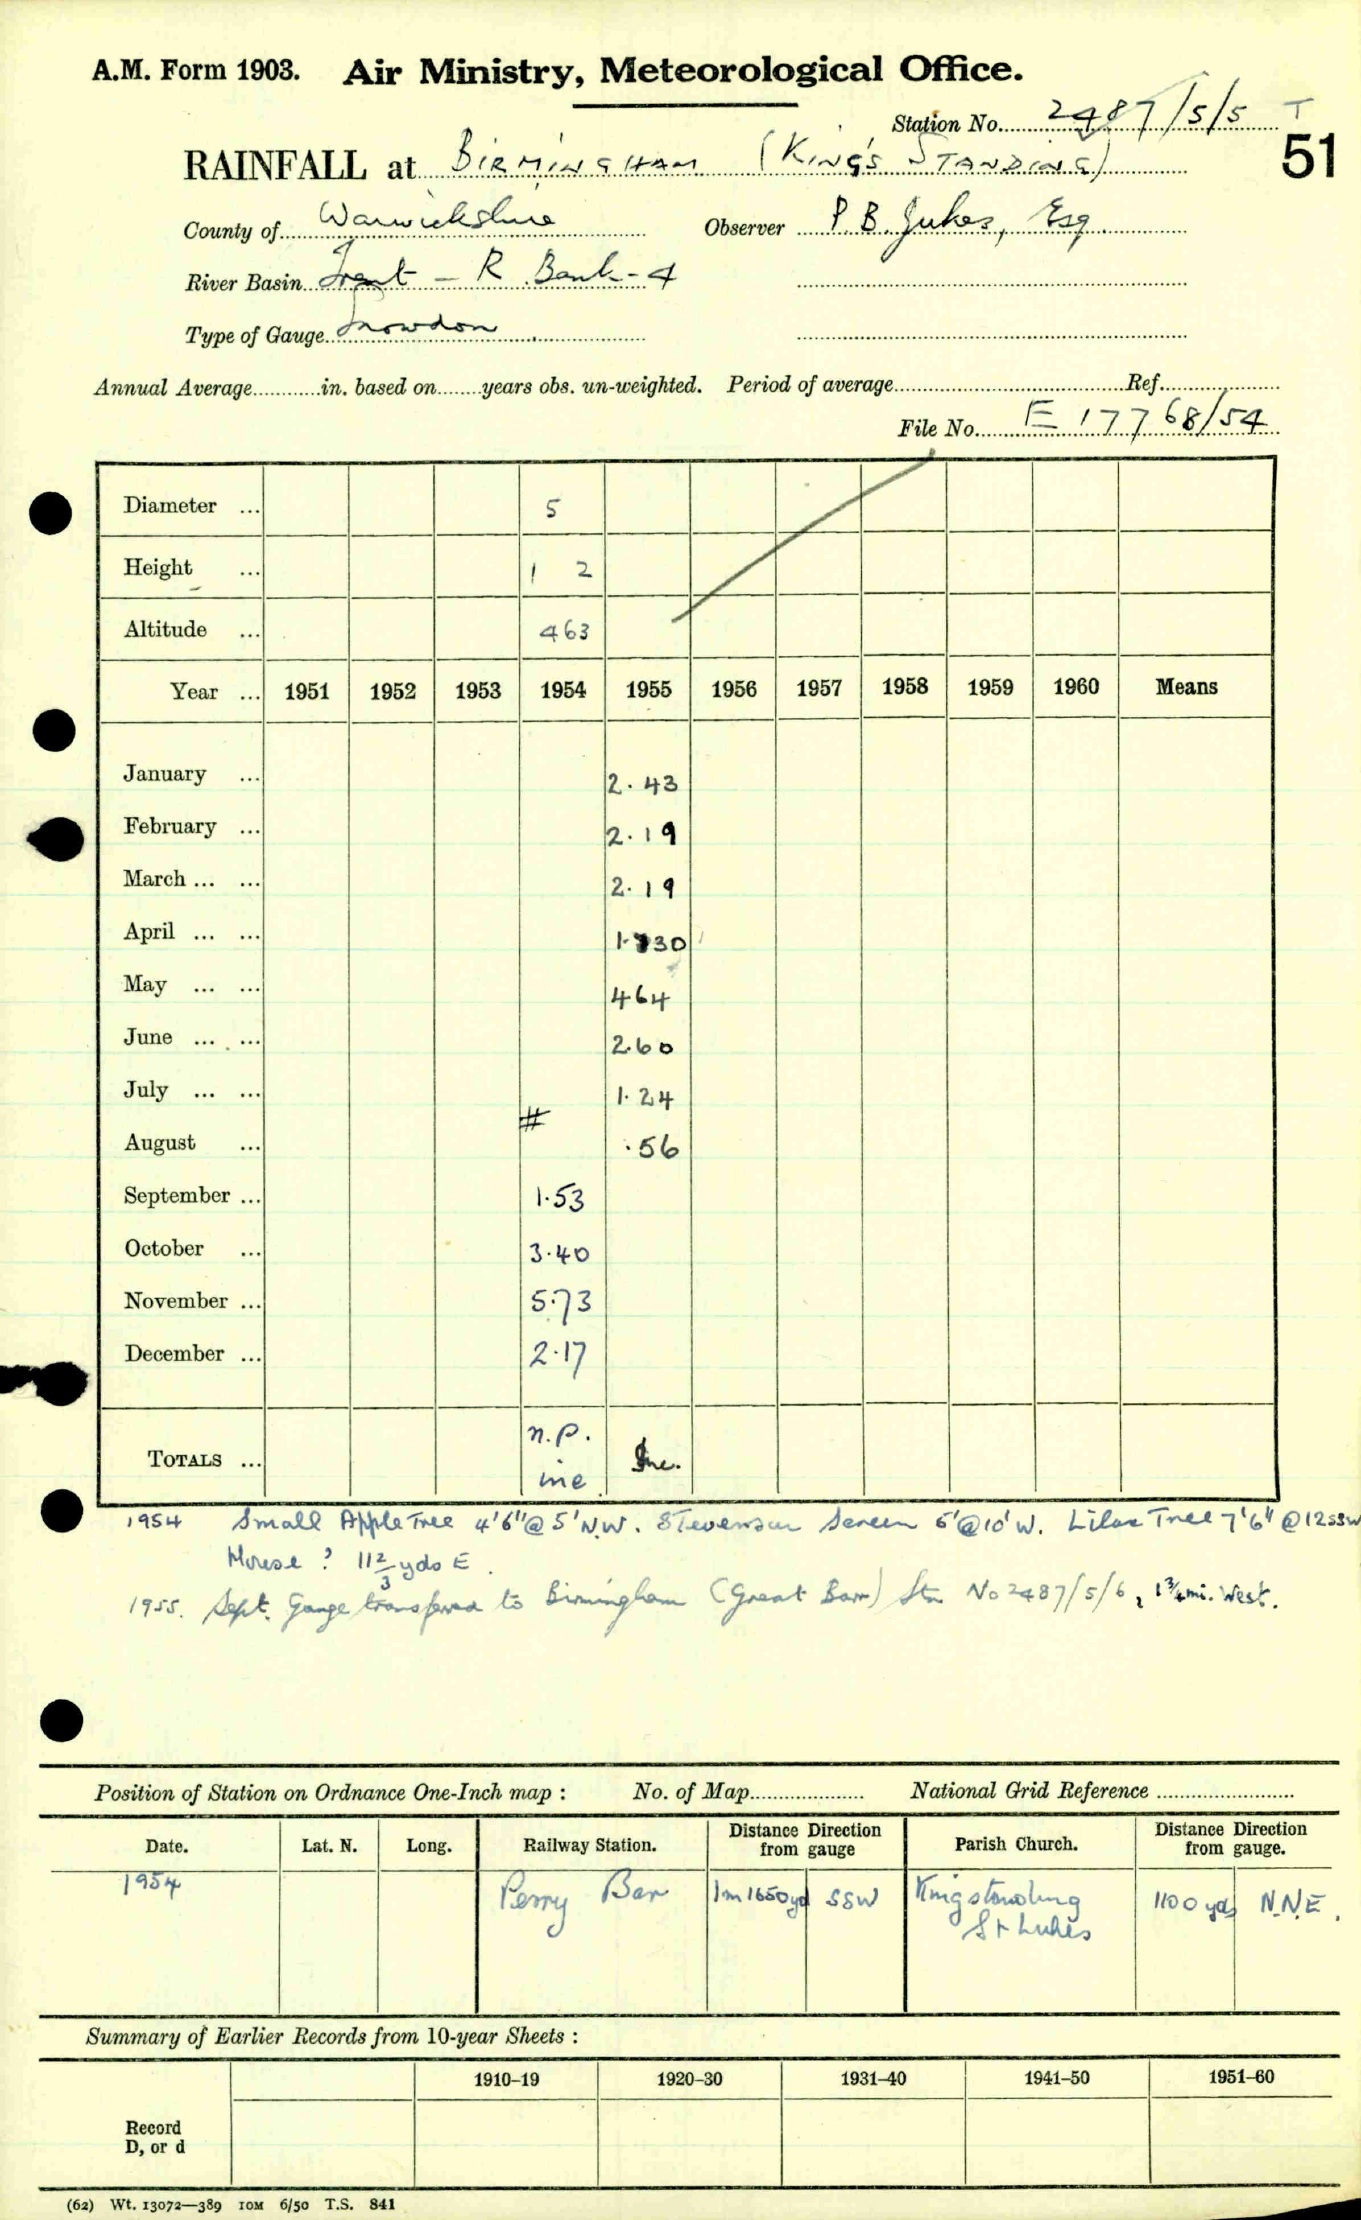 A.M. Form 1903. Air Ministry, Meteorological Office.
Station No. 2487/5/5 T
51
RAINFALL at BIRMINGHAM (KING'S STANDING)
County of Warwickshire Observer P. B. Jukes, Esq.
River Basin Trent – R. Bank – 4
Type of Gauge Snowdon
Annual Average............in. based on........years obs. un-weighted. Period of average............Ref............
File No. E 17768/54
Diameter ... 5
Height ... 1 2
Altitude ... 463
Year ... 1951 1952 1953 1954 1955 1956 1957 1958 1959 1960 Means
January ... 2.43
February ... 2.19
March ... ... 2.19
April ... ... 1.30
May ... ... 464
June ... ... 2.60
July ... ... 1.24
#
August ... .56
September ... 1.53
October ... 3.40
November ... 5.73
December ... 2.17
TOTALS ... n.p. inc Inc.
1954 Small Apple Tree 4'6" @ 5' N.W. Stevenson Screen 6' @ 10' W. Lilac Tree 7'6" @ 12 SSW
House ? 11 2/3 yds E.
1955. Sept. Gauge transferred to Birmingham (Great Barr) Stn No 2487/5/6, 1 3/4 mi. West.
Position of Station on Ordnance One-Inch map : No. of Map............ National Grid Reference ............
Date. Lat. N. Long. Railway Station. Distance Direction from gauge Parish Church. Distance Direction from gauge.
1954 Perry Bar 1m 1650 yd SSW Kingstanding St Lukes 1100 yds N.N.E.
Summary of Earlier Records from 10-year Sheets :
1910–19 1920–30 1931–40 1941–50 1951–60
Record
D, or d
(62) Wt. 13072—389 10M 6/50 T.S. 841